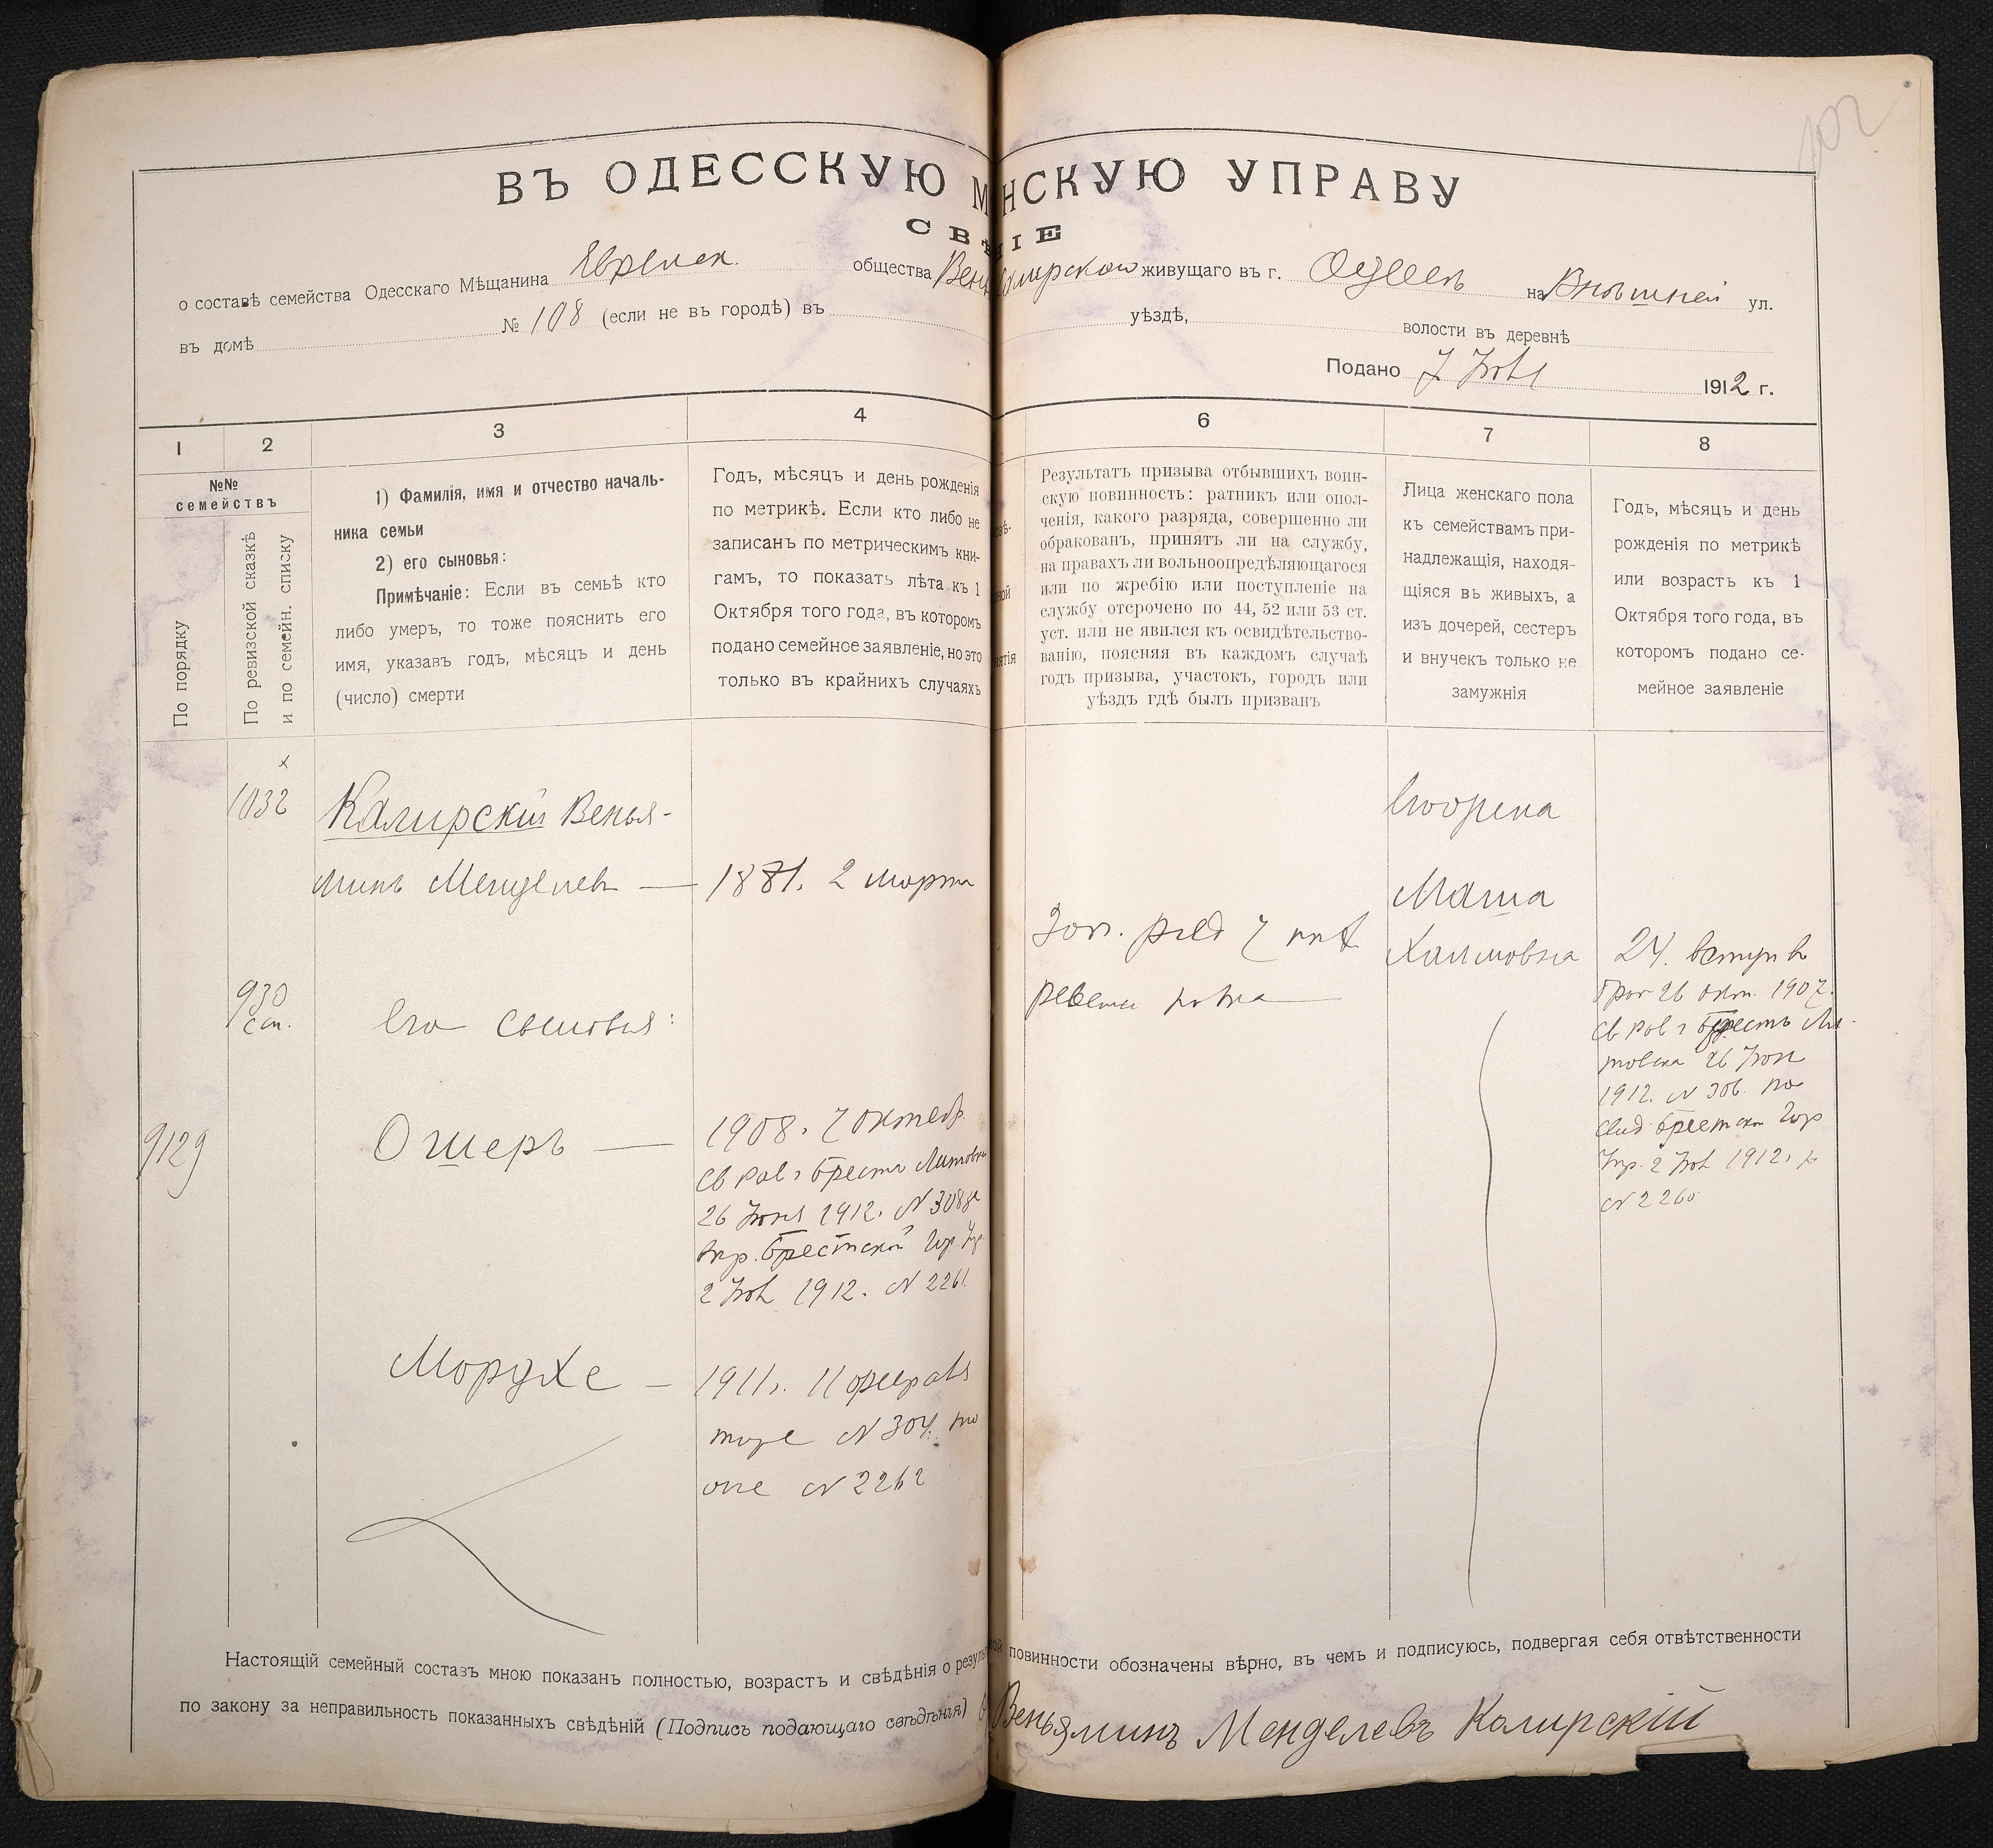 102
ВЪ ОДЕССКУЮ М НСКУЮ УПРАВУ
СВѢ ІЕ
о составѣ семейства Одесскаго Мѣщанина Еврейск. общества живущаго въ г. Одессѣ на Внѣшней ул.
въ домѣ № 108 (если не въ городѣ) въ уѣздѣ, волости въ деревнѣ
Подано 7 1912 г.
1 2 3 4 6 7 8
№№
семействъ
По порядку
По ревизской сказкѣ
и по семейн. списку
1) Фамилія, имя и отчество началь-
ника семьи
2) его сыновья:
Примѣчаніе: Если въ семьѣ кто
либо умеръ, то тоже пояснить его
имя, указавъ годъ, мѣсяцъ и день
(число) смерти
Годъ, мѣсяцъ и день рожденія
по метрикѣ. Если кто либо не
записанъ по метрическимъ кни-
гамъ, то показать лѣта къ 1
Октября того года, въ которомъ
подано семейное заявленіе, но это
только въ крайнихъ случаяхъ
Результатъ призыва отбывшихъ воин-
скую повинность: ратникъ или опол-
ченія, какого разряда, совершенно ли
обракованъ, принятъ ли на службу,
на правахъ ли вольноопредѣляющагося
или по жребію или поступленіе на
службу отсрочено по 44, 52 или 53 ст.
уст. или не явился къ освидѣтельство-
ванію, поясняя въ каждомъ случаѣ
годъ призыва, участокъ, городъ или
уѣздъ гдѣ былъ призванъ
Лица женскаго пола
къ семействамъ при-
надлежащія, находя-
щіяся въ живыхъ, а
изъ дочерей, сестеръ
и внучекъ только не
замужнія
Годъ, мѣсяцъ и день
рожденія по метрикѣ
или возрастъ къ 1
Октября того года, въ
которомъ подано се-
мейное заявленіе
1032 Калирскій Венья-
минъ Менделевъ — 1881. 2 марта
930
сп. Его сыновья:
9129 Ошеръ — 1908. 7 октябр.
Св рав г Брестъ Литовск
26 Іюня 1912. N 308
Брестской Гор
2 1912. N 2261
Мордхе — 1911. 11 февраля
тоже N 304
N 2262
Его жена
Маша
Хаимовна
24. вступ въ
брак 26 окт. 1907.
Св рав г Брестъ Ли-
товска 26 Іюн
1912. N 306. по
Брестск Гор
Упр. 2 1912.
N 2260
Настоящій семейный составъ мною показанъ полностью, возрастъ и свѣдѣнія о резуль ой повинности обозначены вѣрно, въ чемъ и подписуюсь, подвергая себя отвѣтственности
по закону за неправильность показанныхъ свѣдѣній (Подпись подающаго свѣдѣнія) Веньяминъ Менделевъ Калирскій